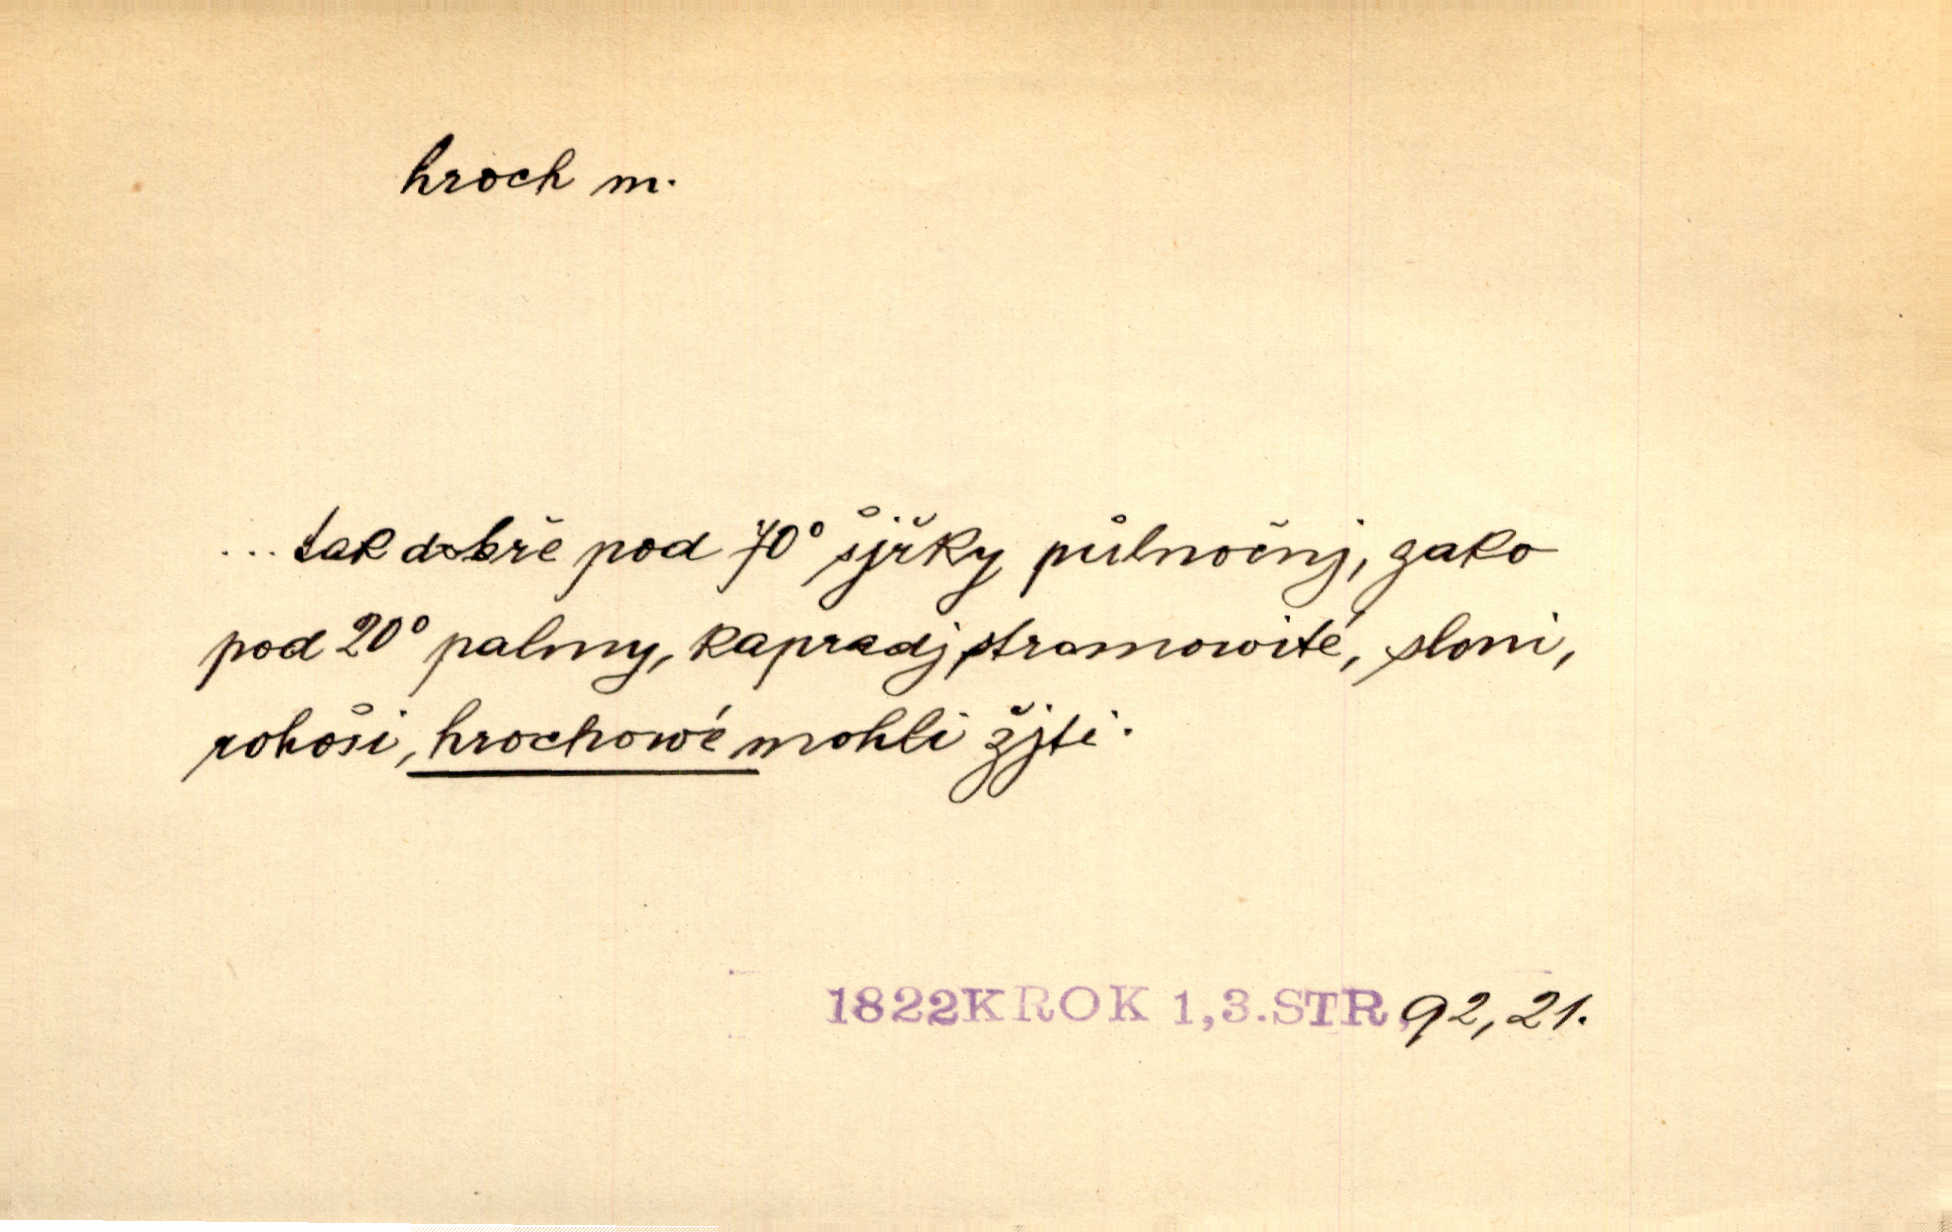 hroch m.
...tak dobře pod 70° šjřky půlnočnj, gako
pod 20° palmy, kapradj stromowité, sloni,
rohoši, hrochowé mohli žjti.
1822 KROK 1,3. STR, 92, 21.